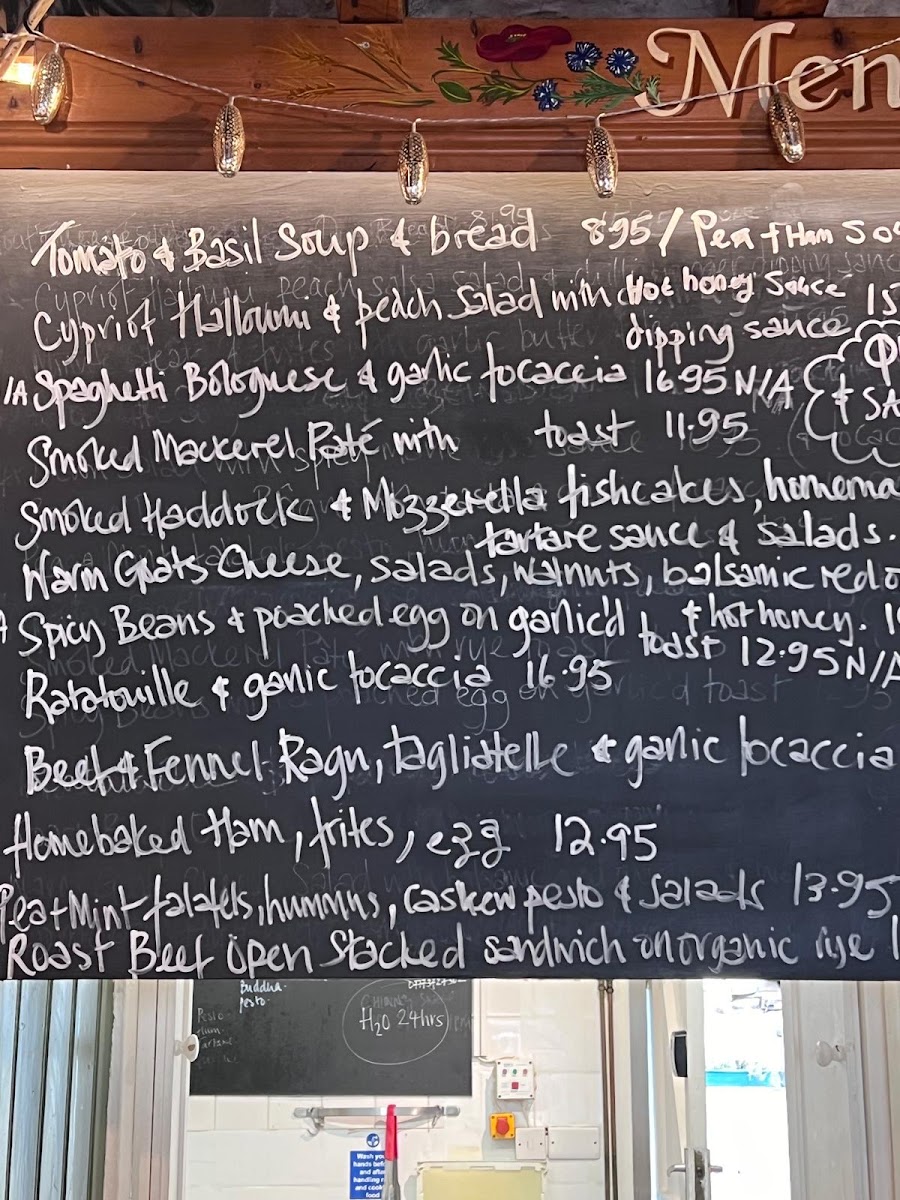 Men
Tomato & Basil Soup & bread 8.95 / Pea + Ham So
Cypriot Halloumi & peach salad with Hot honey Sauce 15
dipping sauce
/A Spaghetti Bolognese & garlic focaccia 16.95 N/A
& SA
Smoked Mackerel Paté with toast 11.95
Smoked Haddock & Mozzerella fishcakes, homema
tartare sauce & salads.
Warm Goats Cheese, salads, walnuts, balsamic red o
& hot honey. 1
Spicy Beans & poached egg on garlic'd toast 12.95 N/A
Ratatouille & garlic focaccia 16.95
Beef & Fennel Ragu, tagliatelle & garlic focaccia
Homebaked Ham, frites, egg 12.95
Pea + Mint falafels, hummus, cashew pesto & salads 13.95
Roast Beef Open Stacked sandwich on organic rye 1
Buddha
Pesto
H2O 24hrs
Wash you
hands befo
and after
handling r
and cook
food